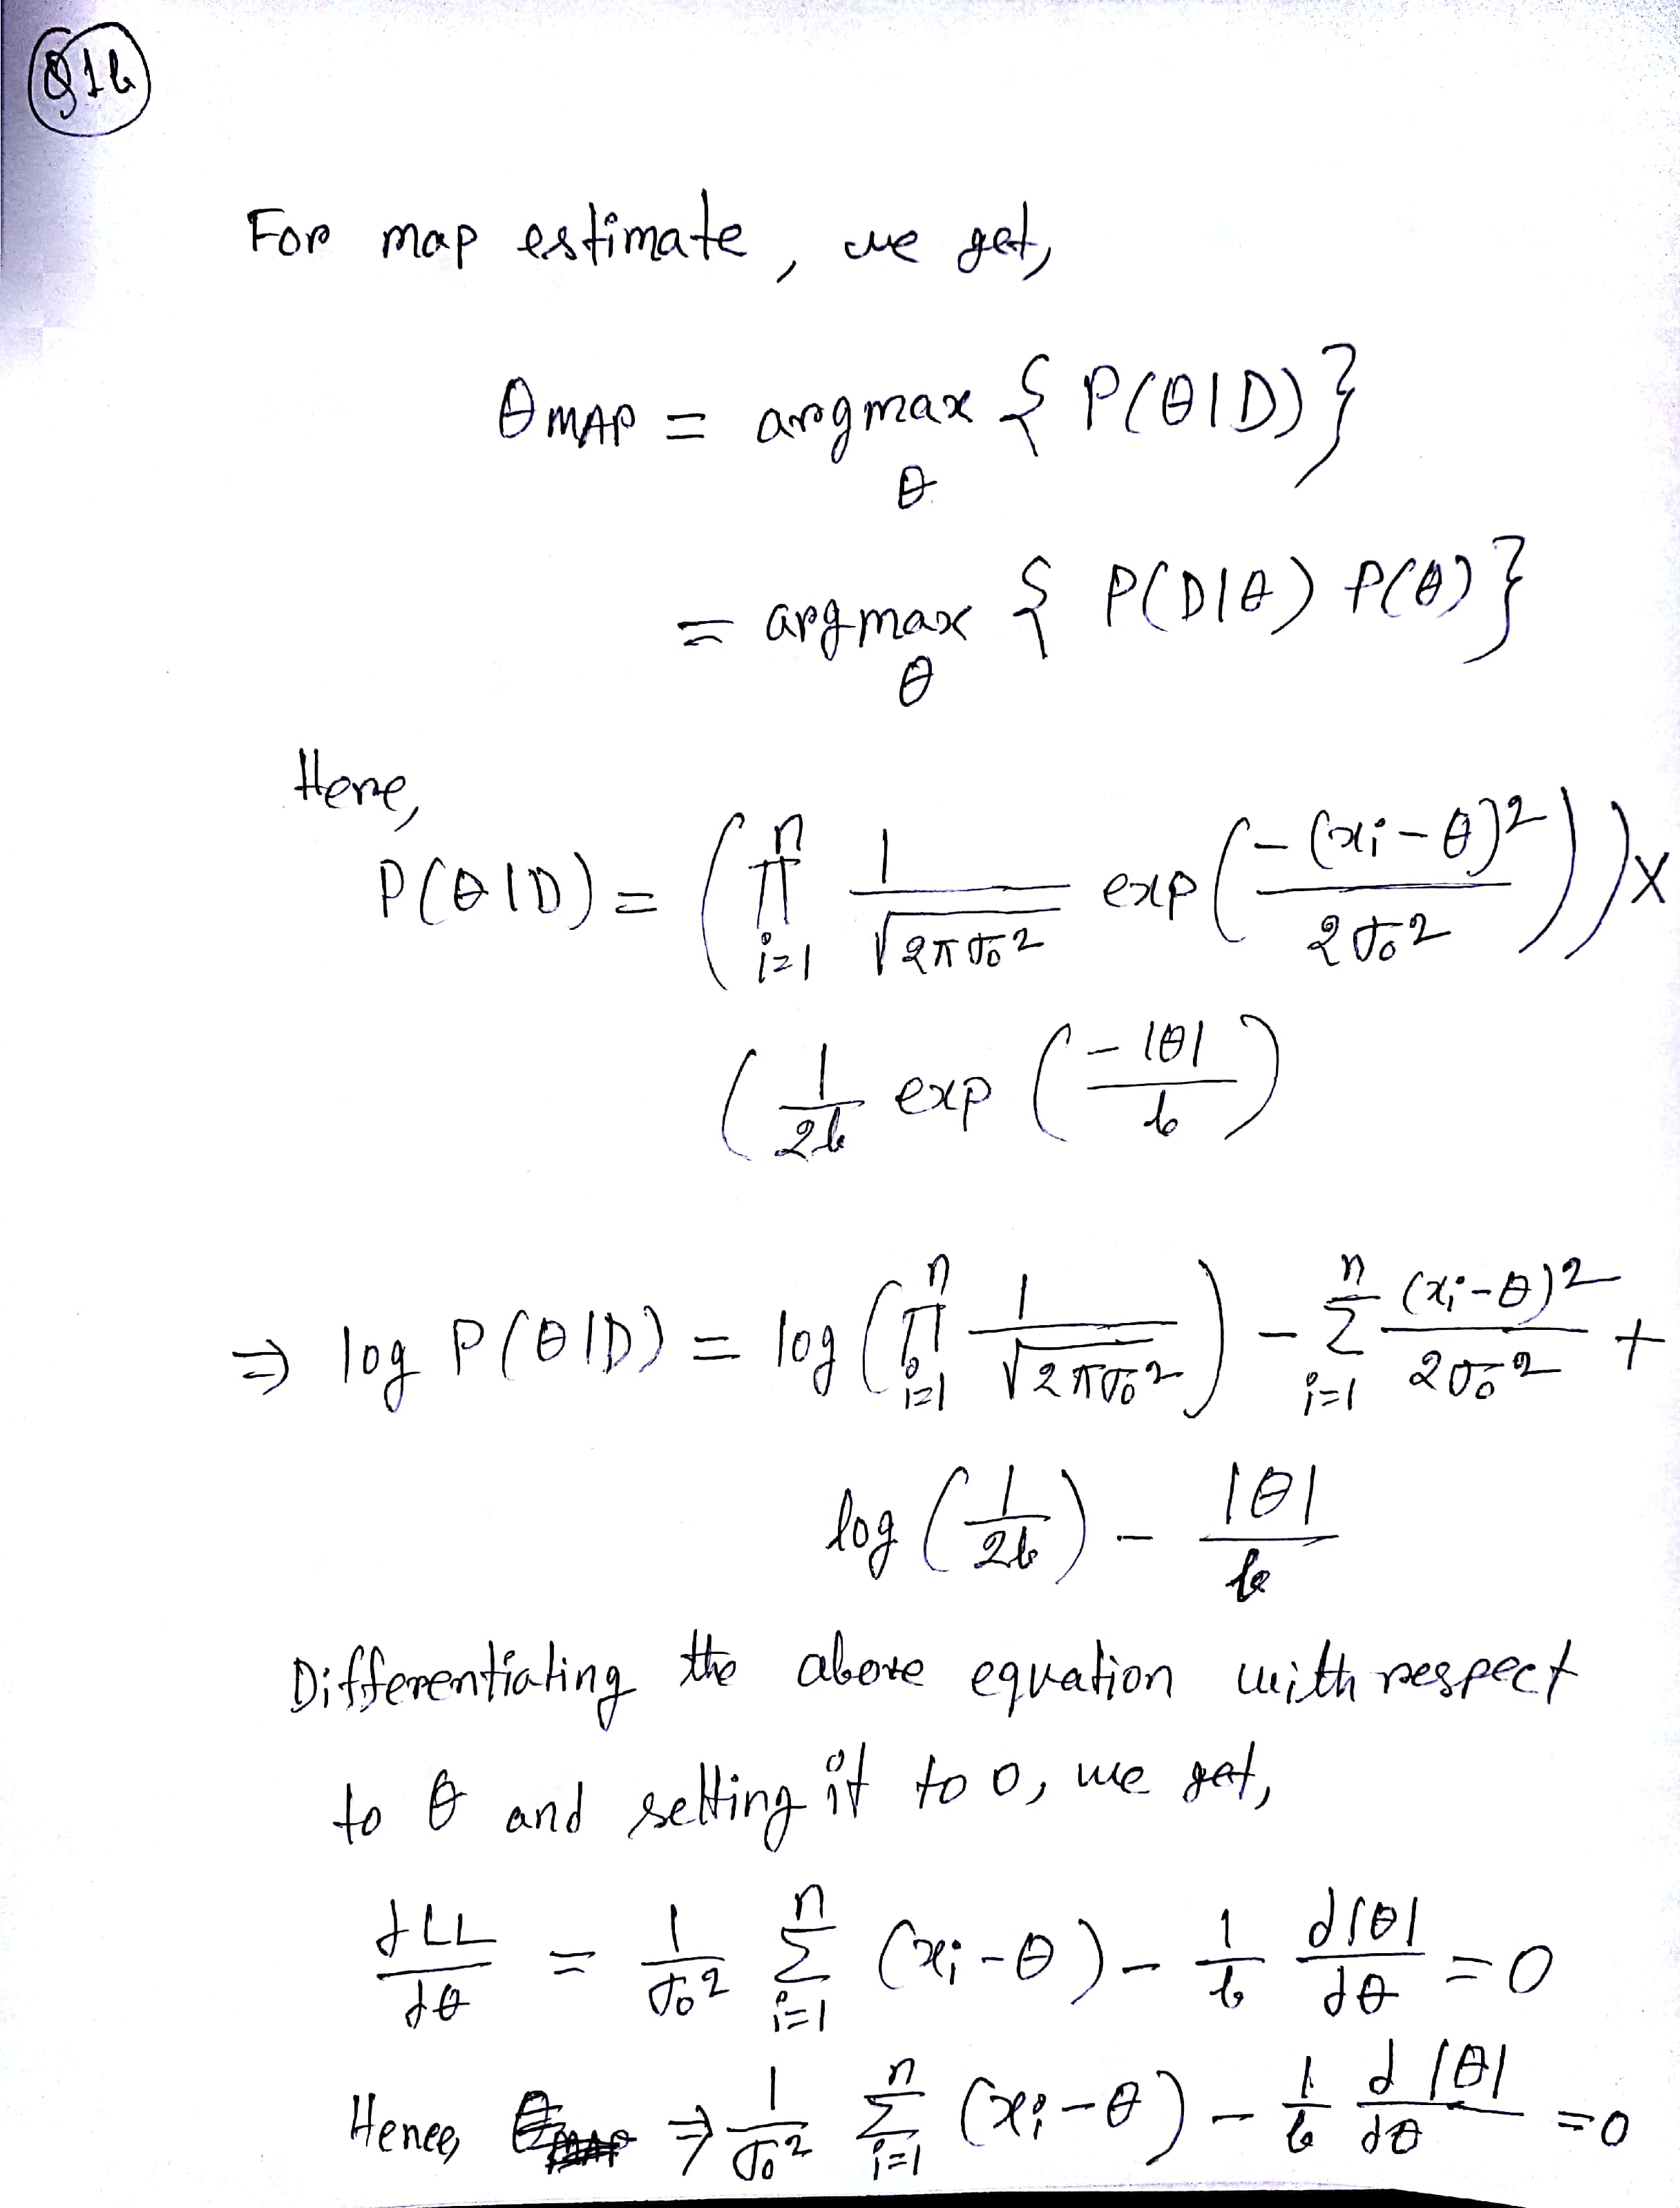 Q1b
For map estimate, we get,
θ_MAP = argmax_θ { P(θ|D) }
= argmax_θ { P(D|θ) P(θ) }
Here,
P(θ|D) = ( ∏_{i=1}^{n} 1/√(2πσ₀²) exp( -(xᵢ-θ)²/2σ₀² ) ) ×
( 1/2b exp ( -|θ|/b )
⇒ log P(θ|D) = log ( ∏_{i=1}^{n} 1/√(2πσ₀²) ) - Σ_{i=1}^{n} (xᵢ-θ)²/2σ₀² +
log ( 1/2b ) - |θ|/b
Differentiating the above equation with respect
to θ and setting it to 0, we get,
dLL/dθ = 1/σ₀² Σ_{i=1}^{n} (xᵢ-θ) - 1/b d|θ|/dθ = 0
Hence, ⇒ 1/σ₀² Σ_{i=1}^{n} (xᵢ-θ) - 1/b d|θ|/dθ = 0